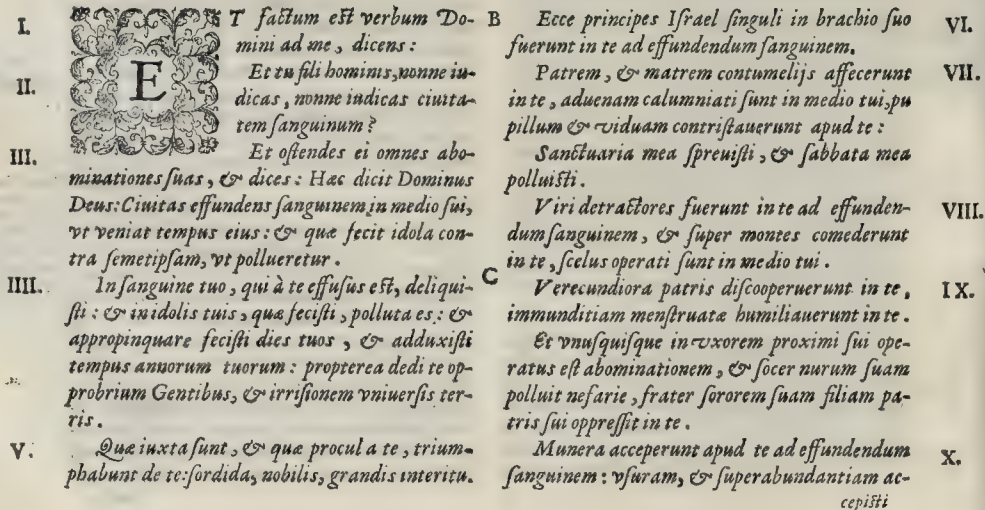 I.
ET factum est verbum Do-
mini ad me, dicens:
II.
Et tu fili hominis, nonne iu-
dicas, nonne iudicas ciuita-
tem sanguinum?
III.
Et ostendes ei omnes abo-
minationes suas, & dices: Hæc dicit Dominus
Deus: Ciuitas effundens sanguinem in medio sui,
vt veniat tempus eius: & quæ fecit idola con-
tra semetipsam, vt pollueretur.
IIII.
In sanguine tuo, qui à te effusus est, deliqui-
sti: & in idolis tuis, quæ fecisti, polluta es: &
appropinquare fecisti dies tuos, & adduxisti
tempus annorum tuorum: propterea dedi te op-
probrium Gentibus, & irrisionem vniuersis ter-
ris.
V.
Quæ iuxta sunt, & quæ procul a te, trium-
phabunt de te: sordida, nobilis, grandis interitu.
B
VI.
Ecce principes Israel singuli in brachio suo
fuerunt in te ad effundendum sanguinem.
VII.
Patrem, & matrem contumelijs affecerunt
in te, aduenam calumniati sunt in medio tui, pu
pillum & viduam contristauerunt apud te:
Sanctuaria mea spreuisti, & sabbata mea
polluisti.
VIII.
Viri detractores fuerunt in te ad effunden-
dum sanguinem, & super montes comederunt
in te, scelus operati sunt in medio tui.
C
IX.
Verecundiora patris discooperuerunt in te,
immunditiam menstruatæ humiliauerunt in te.
Et vnusquisque in vxorem proximi sui ope-
ratus est abominationem, & socer nurum suam
polluit nefarie, frater sororem suam filiam pa-
tris sui oppressit in te.
X.
Munera acceperunt apud te ad effundendum
sanguinem: vsuram, & superabundantiam ac-
cepisti